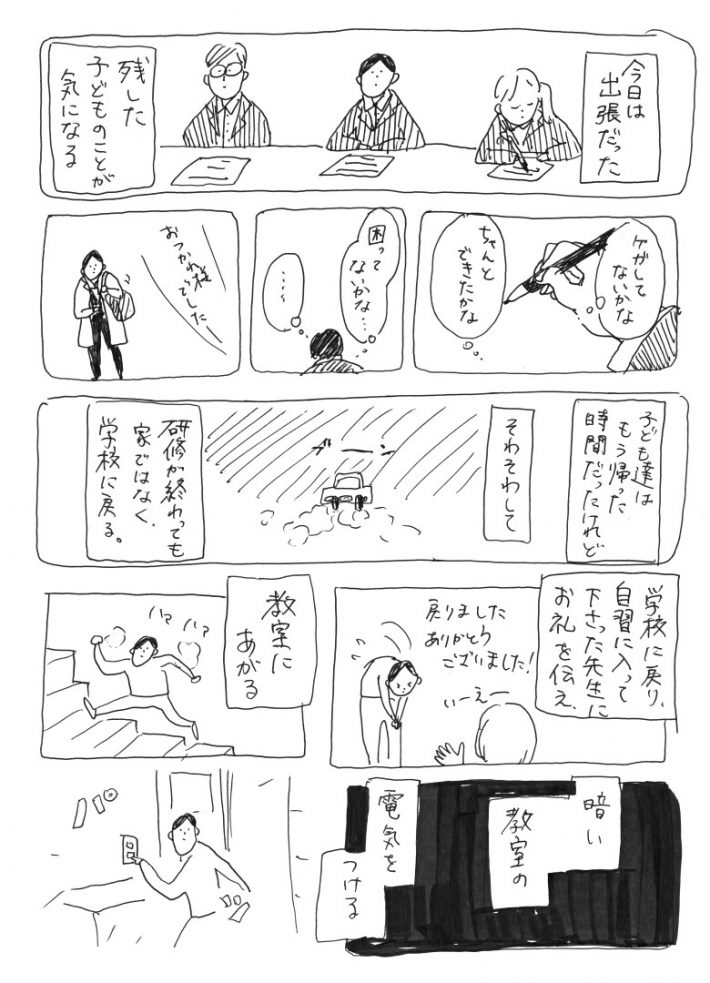 今日は
出張だった
残した
子どものことが
気になる
ケガして
ないかな
ちゃんと
できたかな
困って
ないかな…
…〜
おつかれ様
でした―
子ども達は
もう帰った
時間だったけれど
そわそわして
ブーン
研修が終わっても
家ではなく、
学校に戻る。
学校に戻り、
自習に入って
下さった先生に
お礼を伝え、
戻りました
ありがとう
ございました!
いーえー
教室に
あがる
ハァ ハァ
暗い
教室の
電気を
つける
パッ